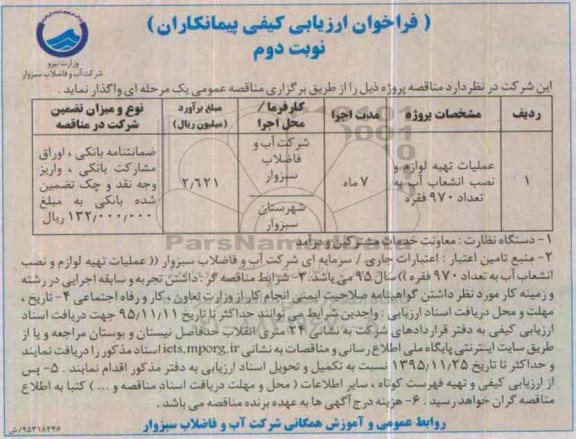 ( فراخوان ارزیابی کیفی پیمانکاران )
نوبت دوم
وزارت نیرو
شرکت آب و فاضلاب سبزوار
این شرکت در نظر دارد مناقصه پروژه ذیل را از طریق برگزاری مناقصه عمومی یک مرحله ای واگذار نماید .
ردیف
مشخصات پروژه
مدت اجرا
کارفرما / محل اجرا
مبلغ برآورد (میلیون ریال)
نوع و میزان تضمین شرکت در مناقصه
۱
عملیات تهیه لوازم و
نصب انشعاب آب به
تعداد ۹۷۰ فقره
۷ ماه
شرکت آب و
فاضلاب
سبزوار
شهرستان
سبزوار
۲/۶۲۱
ضمانتنامه بانکی ، اوراق
مشارکت بانکی ، واریز
وجه نقد و چک تضمین
شده بانکی به مبلغ
۱۳۲/۰۰۰/۰۰۰ ریال
۱- دستگاه نظارت : معاونت خدمات مشترکین و درآمد
۲- منبع تامین اعتبار : اعتبارات جاری / سرمایه ای شرکت آب و فاضلاب سبزوار (( عملیات تهیه لوازم و نصب
انشعاب آب به تعداد ۹۷۰ فقره )) سال ۹۵ می باشد. ۳- شرایط مناقصه گر : داشتن تجربه و سابقه اجرایی در رشته
و زمینه کار مورد نظر داشتن گواهینامه صلاحیت ایمنی انجام کار از وزارت تعاون ، کار و رفاه اجتماعی ۴- تاریخ ،
مهلت و محل دریافت اسناد ارزیابی : واجدین شرایط می توانند حداکثر تا تاریخ ۹۵/۱۱/۱۱ جهت دریافت اسناد
ارزیابی کیفی به دفتر قراردادهای شرکت به نشانی ۲۴ متری انقلاب حدفاصل نیستان و بوستان مراجعه و یا از
طریق سایت اینترنتی پایگاه ملی اطلاع رسانی و مناقصات به نشانی iets.mporg.ir اسناد مذکور را دریافت نمایند
و حداکثر تا تاریخ ۱۳۹۵/۱۱/۲۵ نسبت به تکمیل و تحویل اسناد ارزیابی به دفتر مذکور اقدام نمایند . ۵- پس
از ارزیابی کیفی و تهیه فهرست کوتاه ، سایر اطلاعات ( محل و مهلت دریافت اسناد مناقصه و ... ) کتبا به اطلاع
مناقصه گران خواهد رسید . ۶- هزینه درج آگهی ها به عهده برنده مناقصه می باشد .
روابط عمومی و آموزش همگانی شرکت آب و فاضلاب سبزوار
۹۵۳۱۸۳۲۶/ش